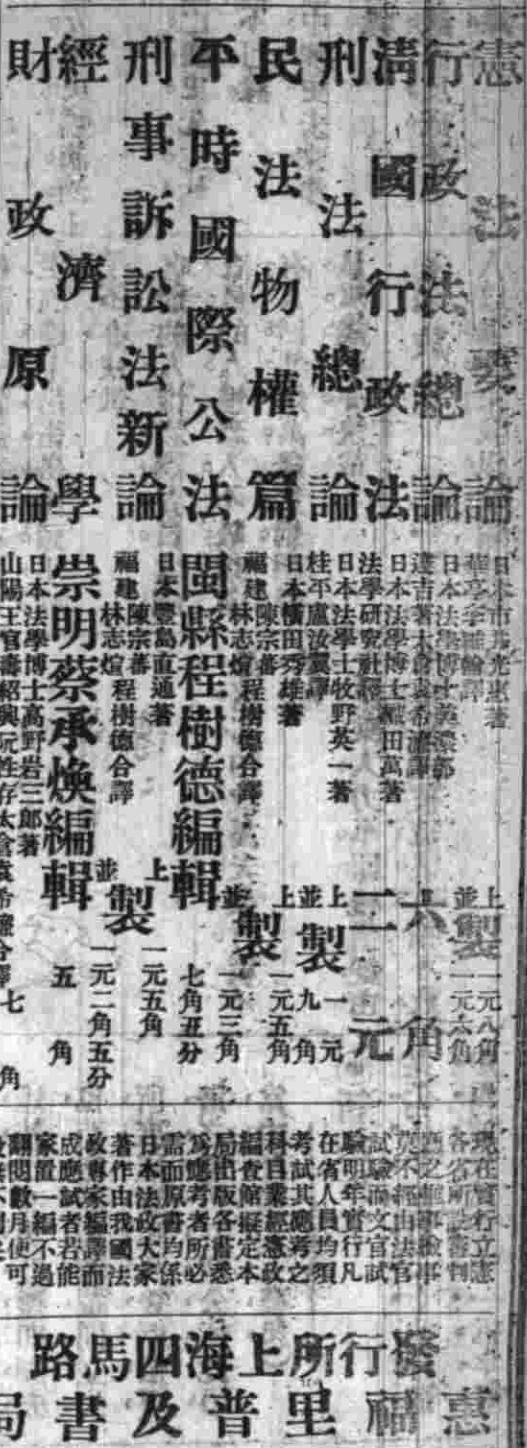 憲法要論
日本市邨光惠著
上製一元八角
並製一元六角
行政法總論
日本法學博士美濃部
達吉著太倉袁希濂譯
六角
清國行政法
日本法學博士織田萬著
法學研究社譯
二元
刑法總論
日本法學士牧野英一著
桂平盧汝翼譯
上製一元
並製九角
民法物權篇
日本橫田秀雄著
福建陳宗蕃林志烜程樹德合譯
上製一元五角
並製一元三角
平時國際公法
閩縣程樹德編輯
七角五分
刑事訴訟法新論
日本豐島直通著
福建陳宗蕃林志烜程樹德合譯
上製一元五角
並製一元二角五分
經濟學
崇明蔡承煥編輯
五角
財政原論
日本法學博士高野岩三郎著
山陽王官壽紹興阮性存太倉袁希濂合譯
七角
現在實行立憲
各省所設審判
廳之
莫不經由法官
試驗而文官試
驗明年實行凡
在省人員均須
考試其應考之
科目業經憲政
編查館擬定本
局出版各書悉
爲應考者所必
需而原書均係
日本法政大家
著作由我國法
政專家編譯而
成應試者若能
家置一編不過
翻閱數月便可
發行所上海四馬路
惠福里普及書局